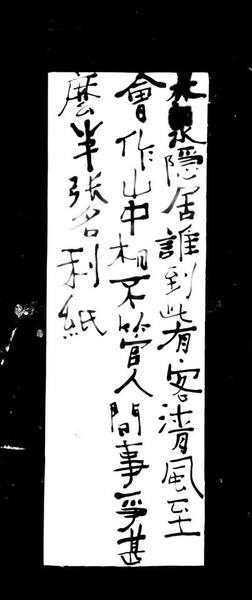 林泉隱居誰到此有客清風至
會作山中相不管人間事爭甚
麼半張名利紙